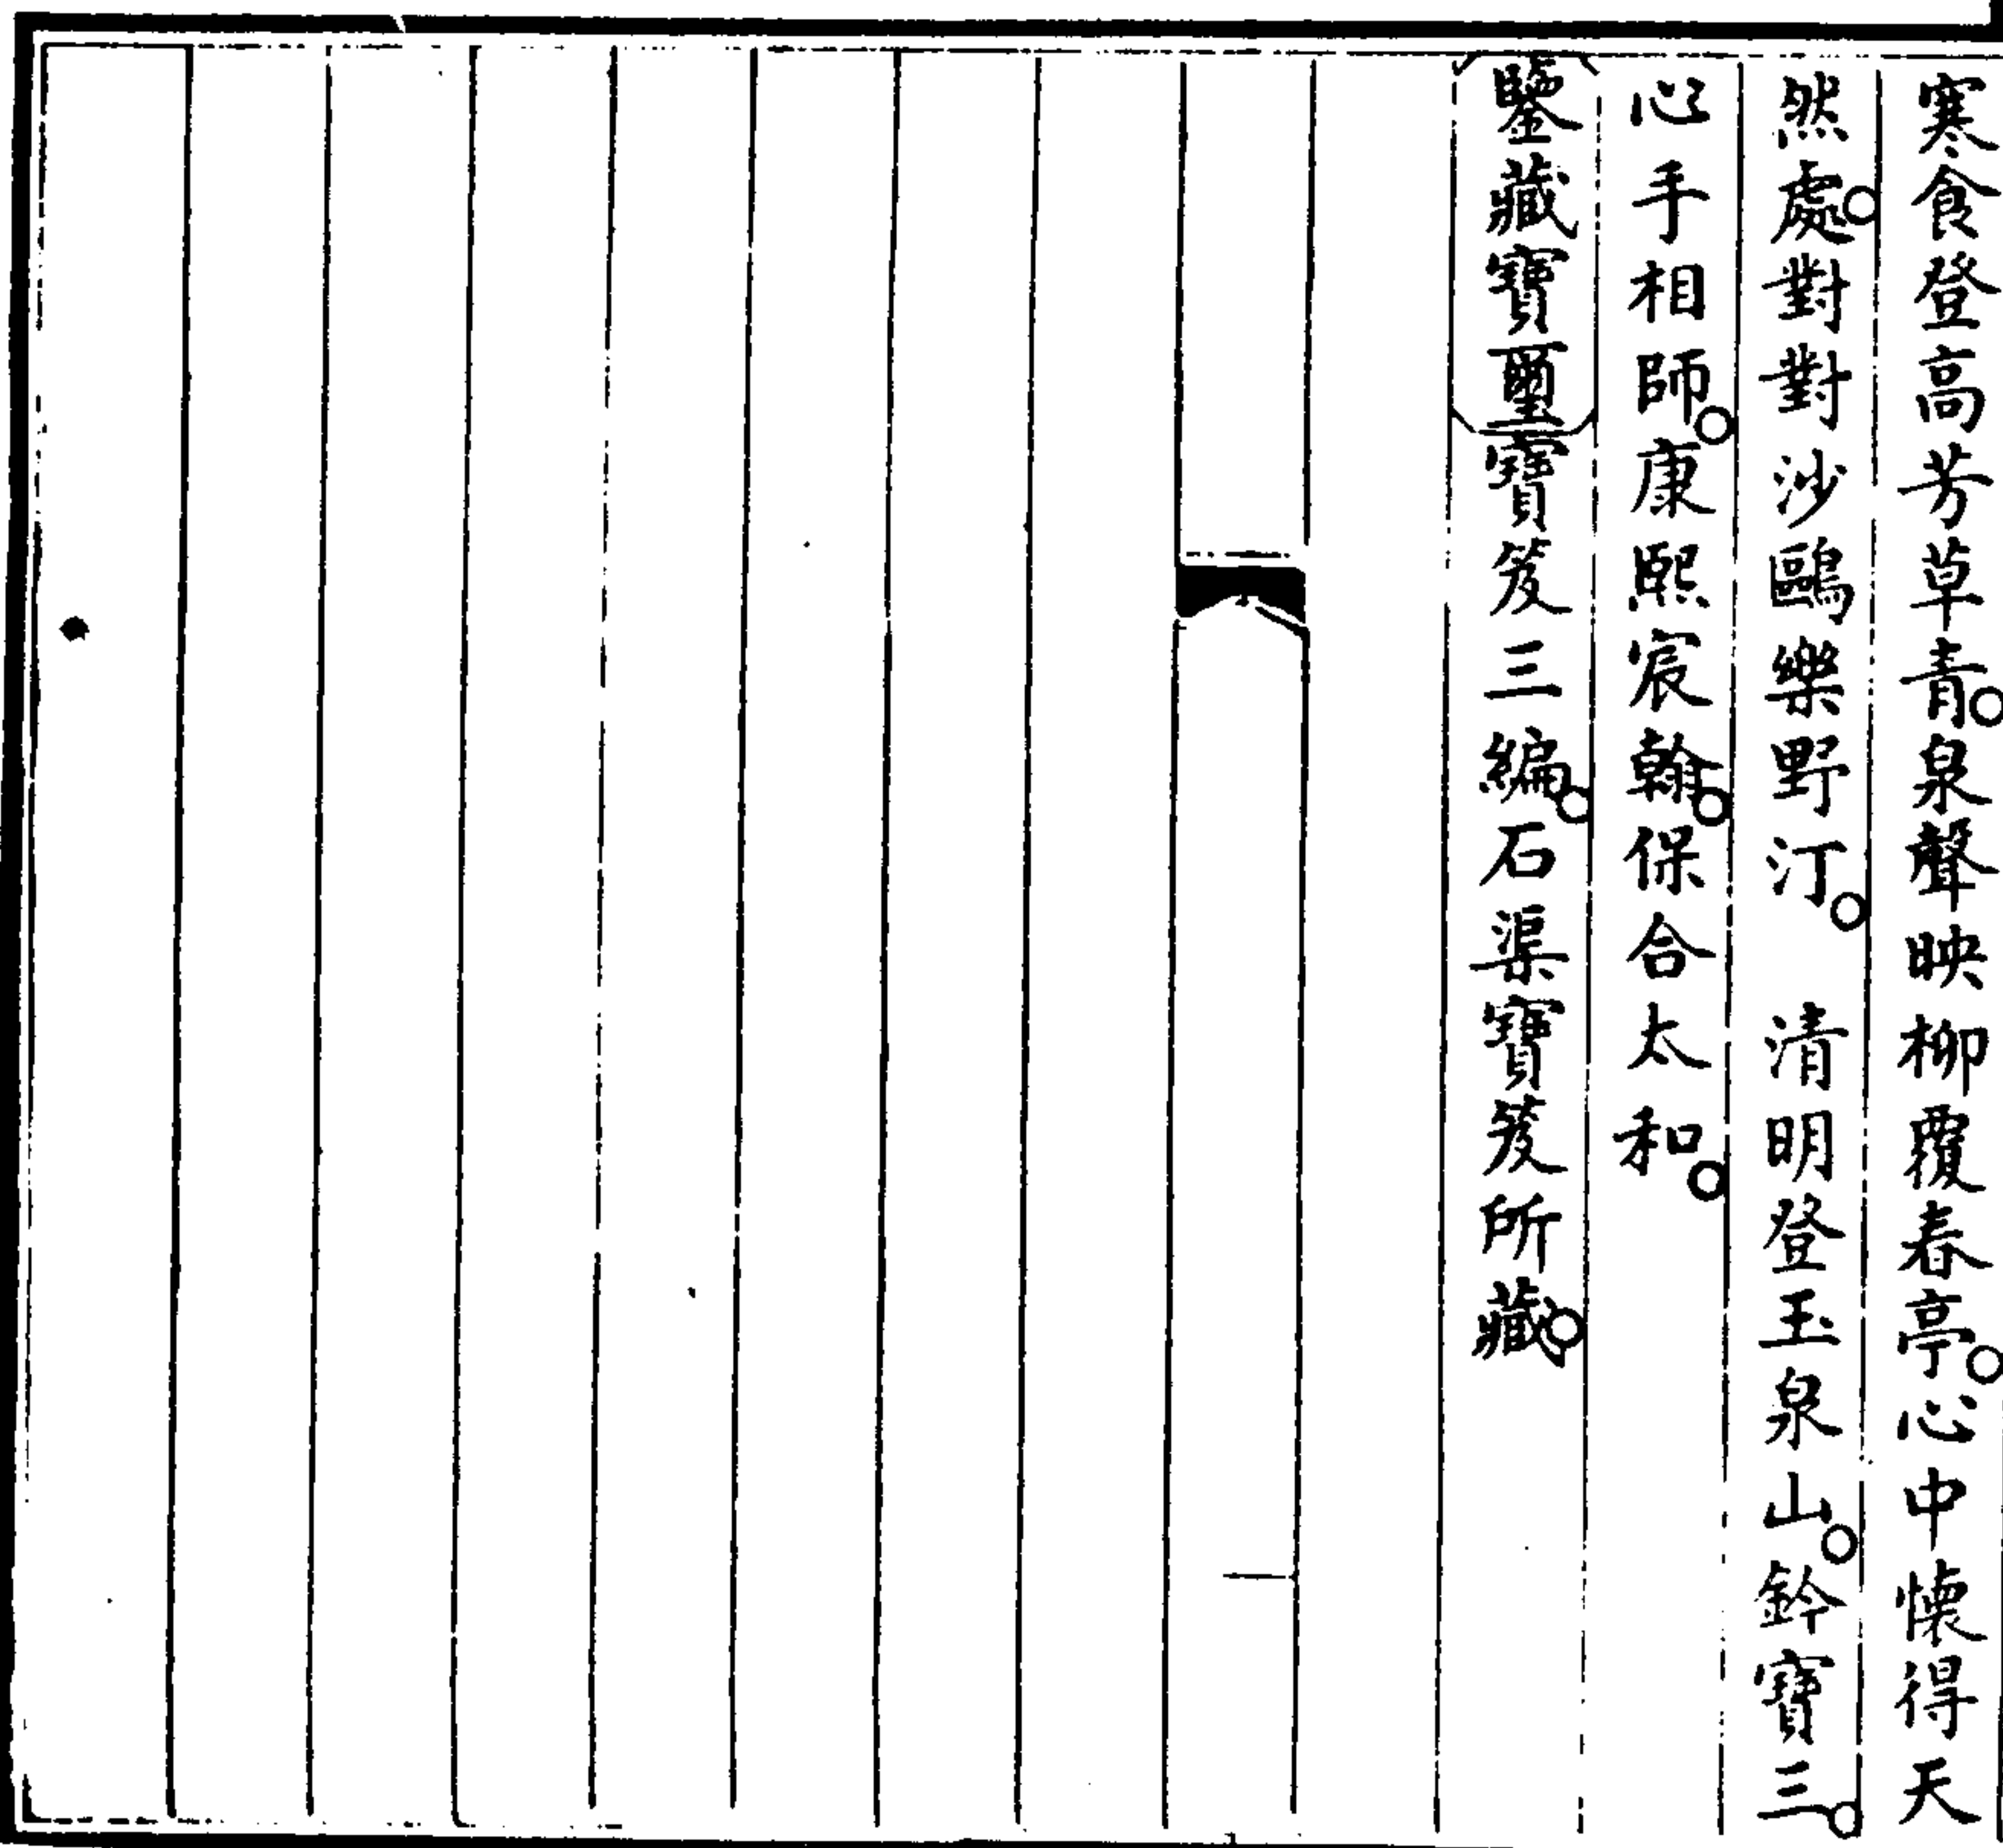 寒食登高芳草青。泉聲映柳覆春亭。心中懐得天
然處。對對沙鷗樂野汀。　清明登玉泉山。鈐寶三。
心手相師。康熙宸翰。保合太和。
鑒藏寶璽寶笈三編。石渠寶笈所藏。